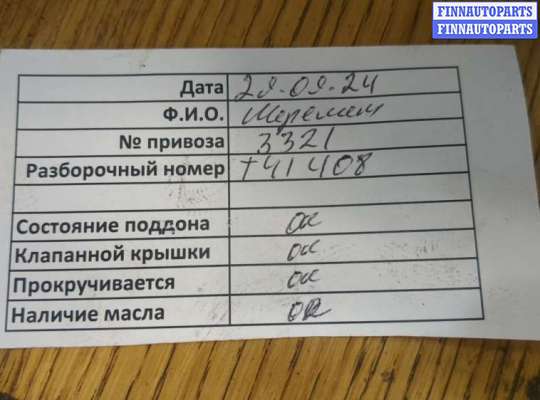 FINNAUTOPARTS
FINNAUTOPARTS
Дата 29.09.24
Ф.И.О. Шеремет
№ привоза 3321
Разборочный номер T41408
Состояние поддона ок
Клапанной крышки ок
Прокручивается ок
Наличие масла ок